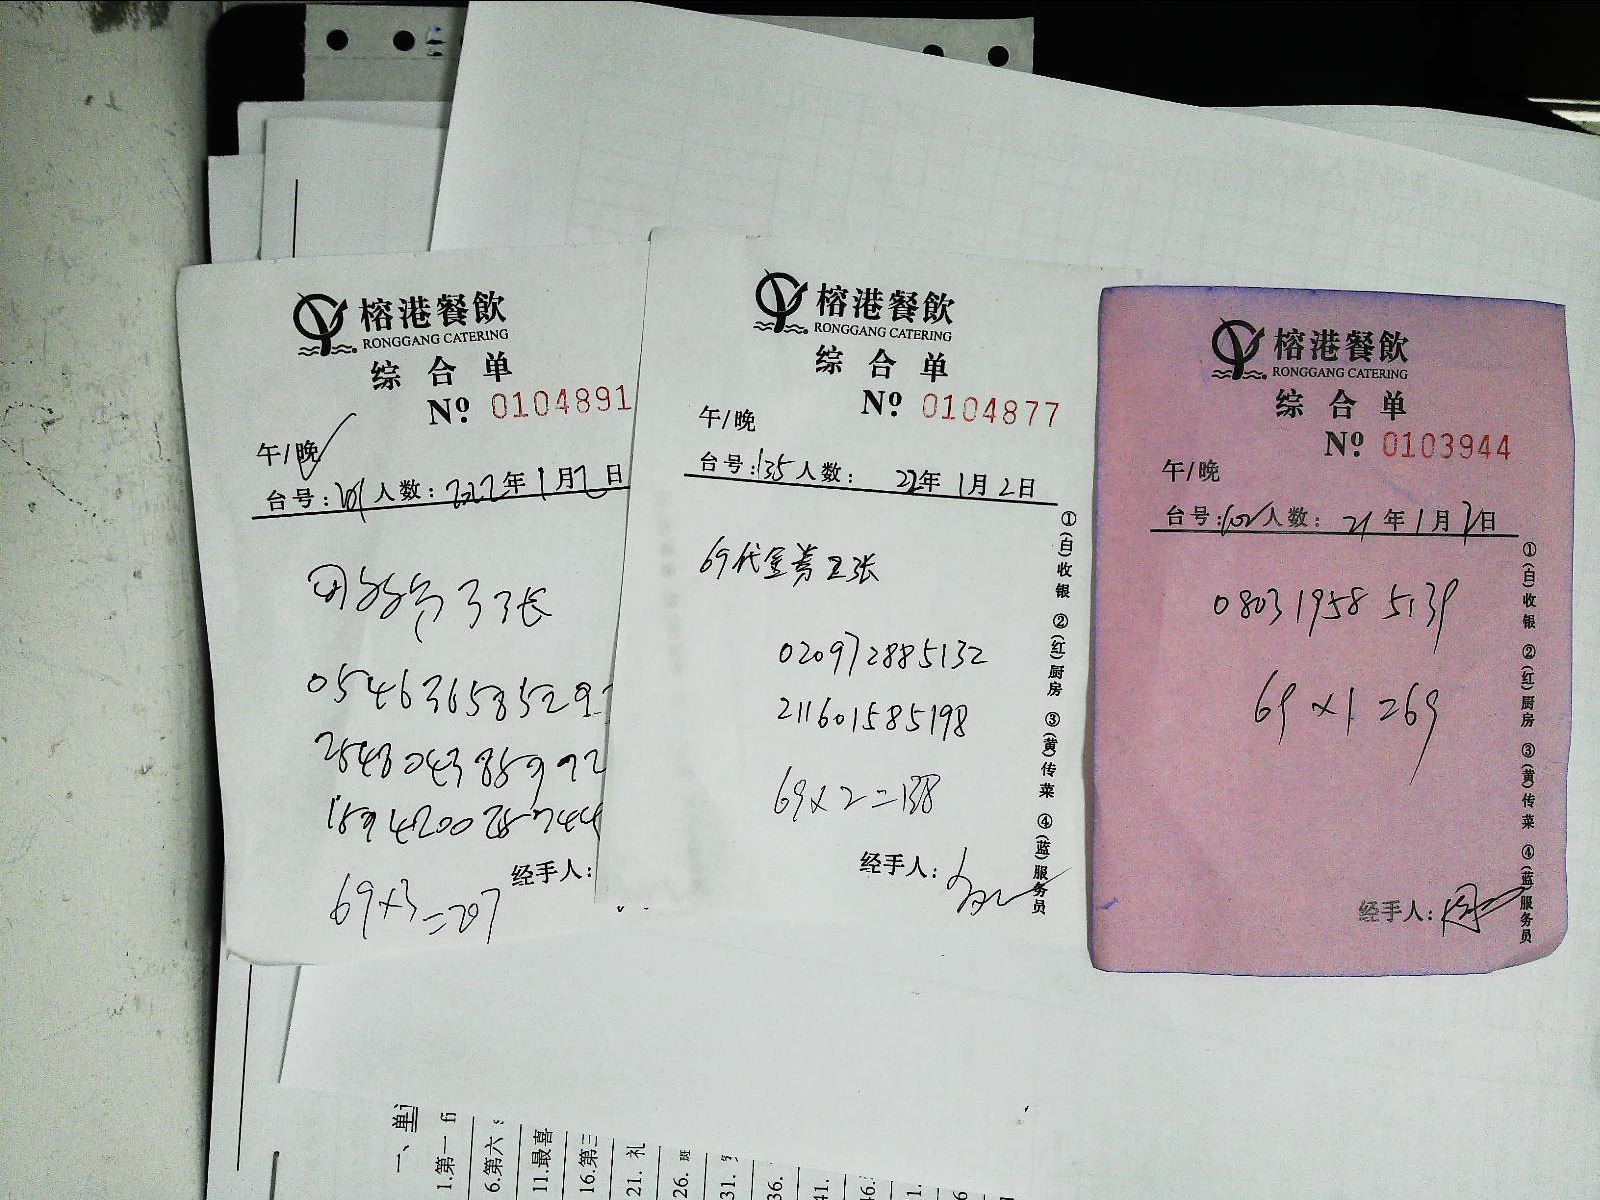 榕港餐飲
RONGGANG CATERING
综合单
Nº 0104891
午/晚
台号: 人数: 2022年1月2日
3张
69×3=207
经手人:
榕港餐飲
RONGGANG CATERING
综合单
Nº 0104877
午/晚
台号:135 人数: 22年1月2日
69代金券 张
020972885132
211601585198
69×2=138
经手人:
①(白)收银 ②(红)厨房 ③(黄)传菜 ④(蓝)服务员
榕港餐飲
RONGGANG CATERING
综合单
Nº 0103944
午/晚
台号: 人数: 21年1月2日
0803 1958 5139
69×1=69
经手人:
①(白)收银 ②(红)厨房 ③(黄)传菜 ④(蓝)服务员
一、单
1.第一
6.第六
11.最喜
16.第三
21.礼
26.班
31.
36.
41.
46.
1.
6